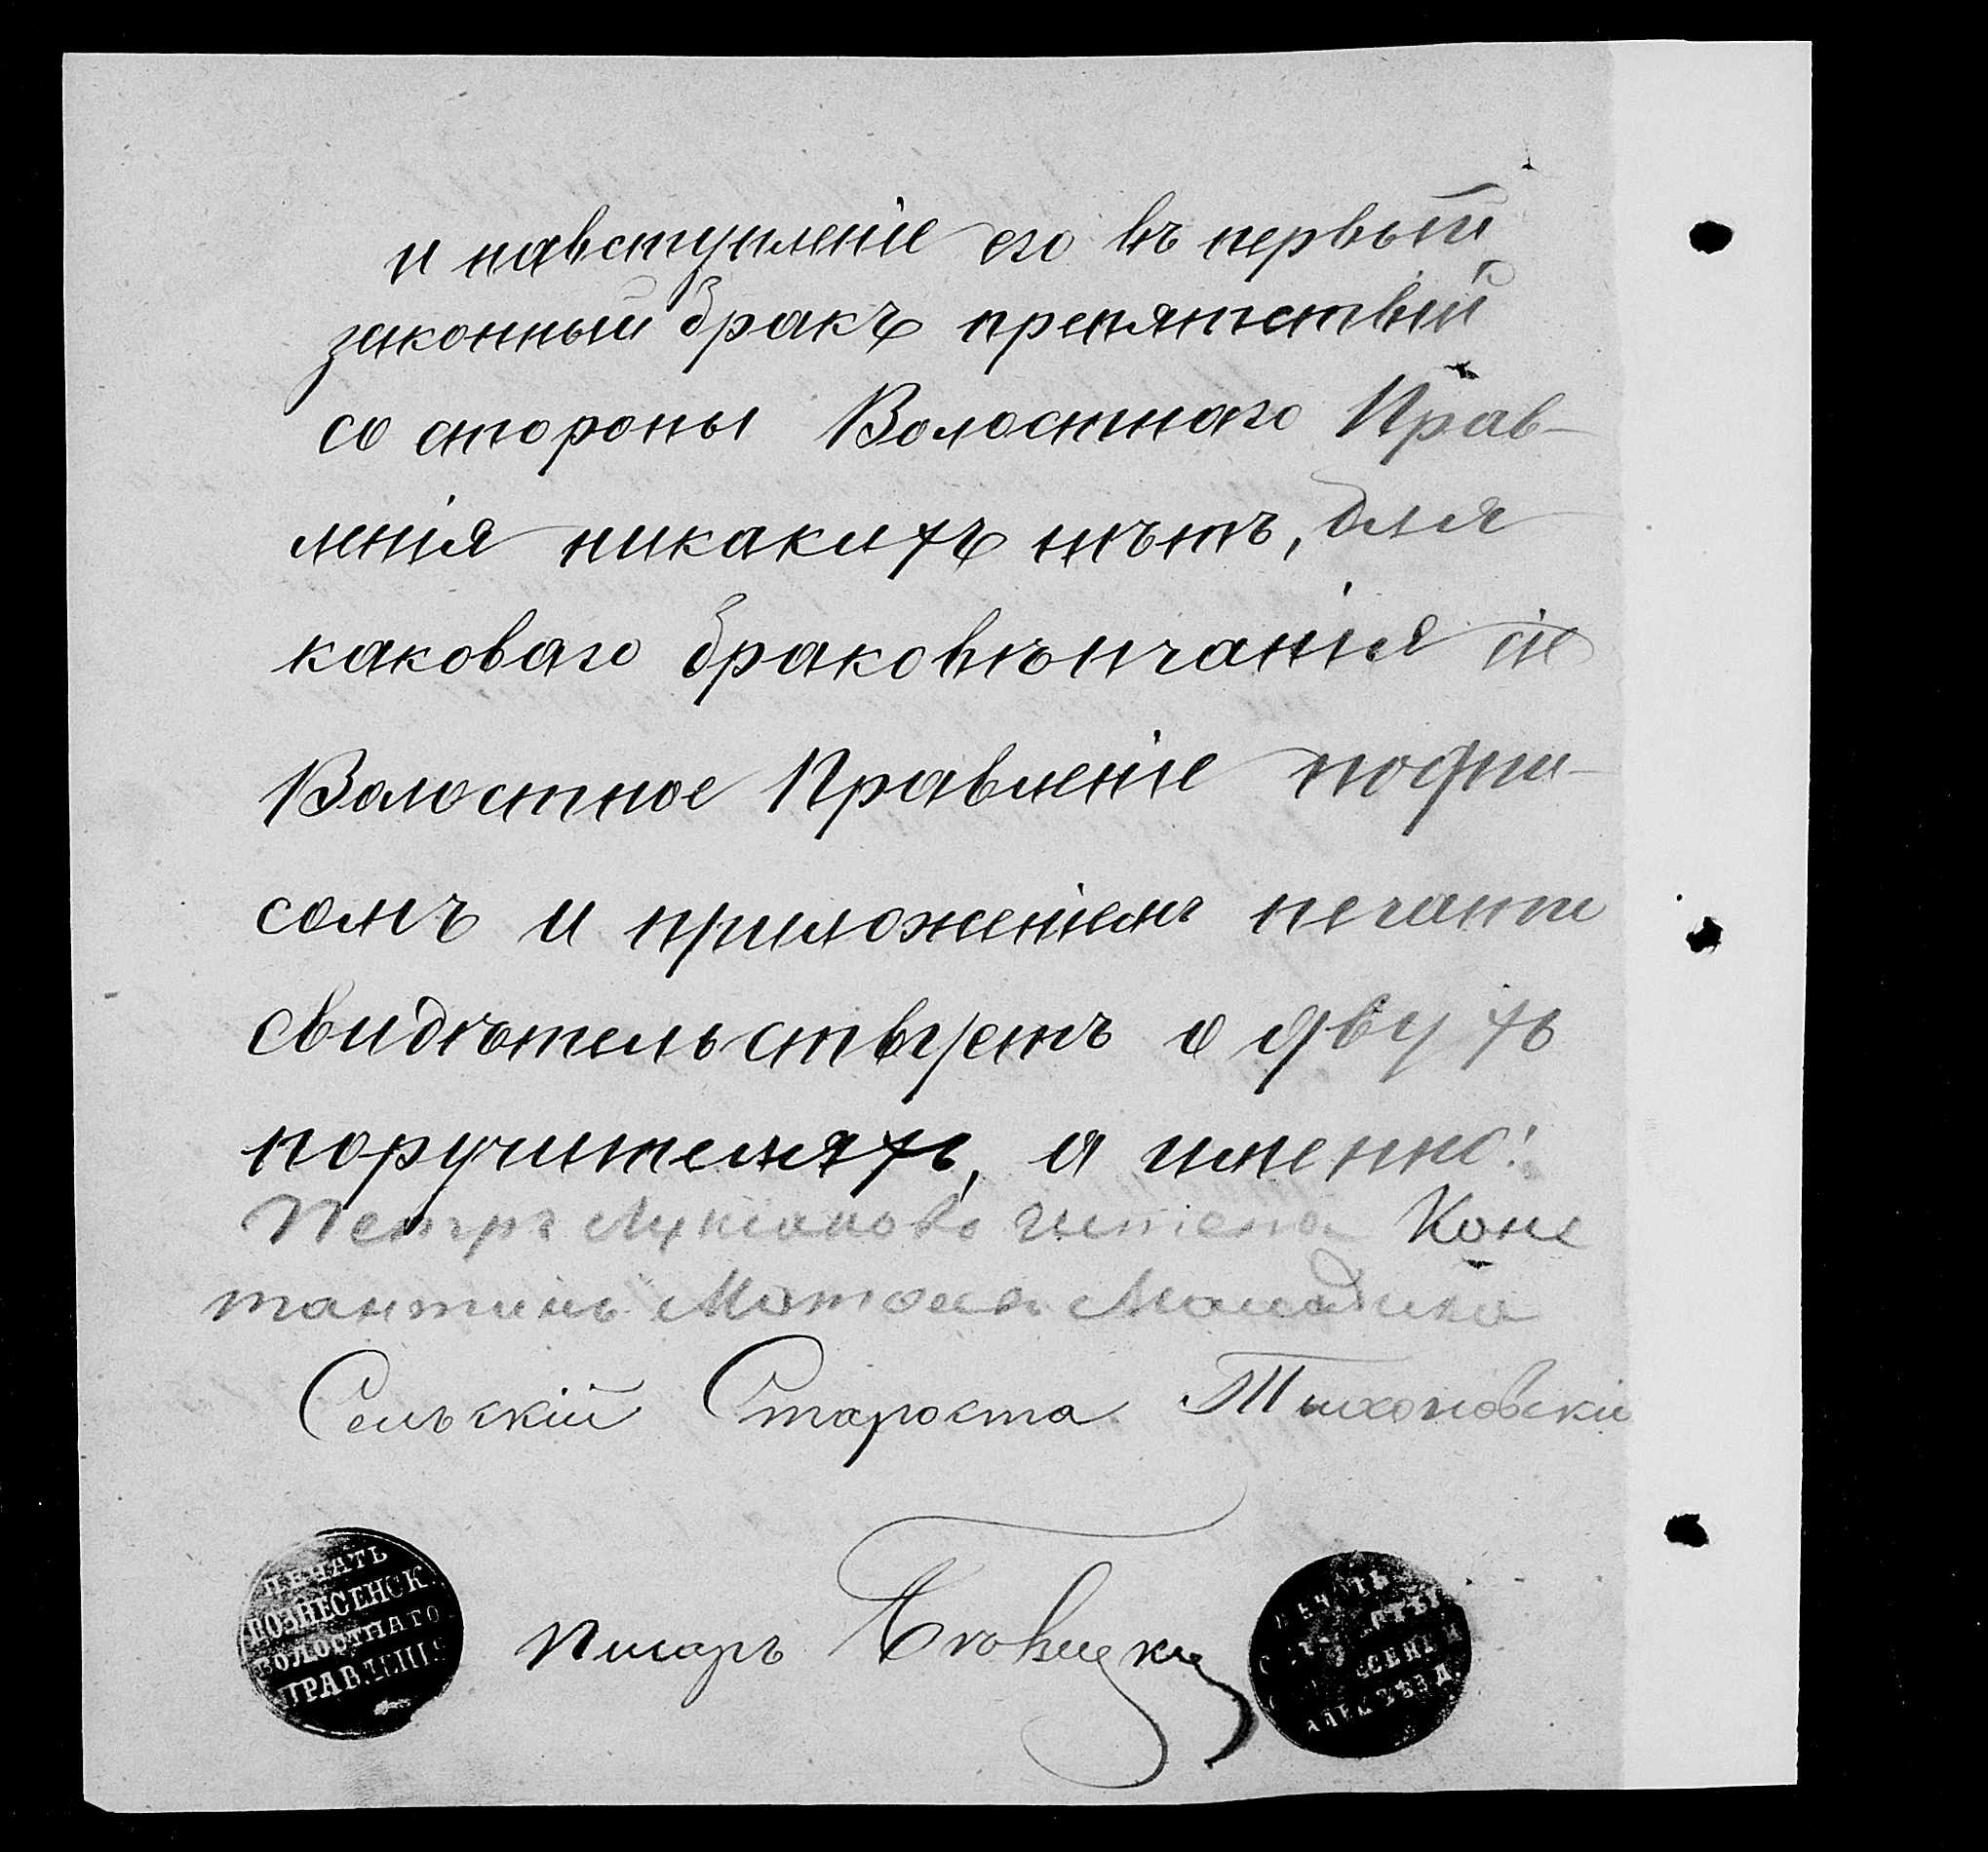 и навступленіе его въ первый
законный бракъ препятствій
со стороны Волостнаго Прав-
ленія никакихъ нѣтъ, для
каковаго браковѣнчанія сіе
Волостное Правленіе подпи-
сомъ и приложеніемъ печати
свидѣтельствуетъ о двухъ
поручителяхъ, а именно:
Петръ Конс
тантинъ
Сельскій Староста Тихоновскій
Писарь
ПЕЧАТЬ
ВОЗНЕСЕНСК.
ВОЛОСТНАГО
ПРАВЛЕНІЯ